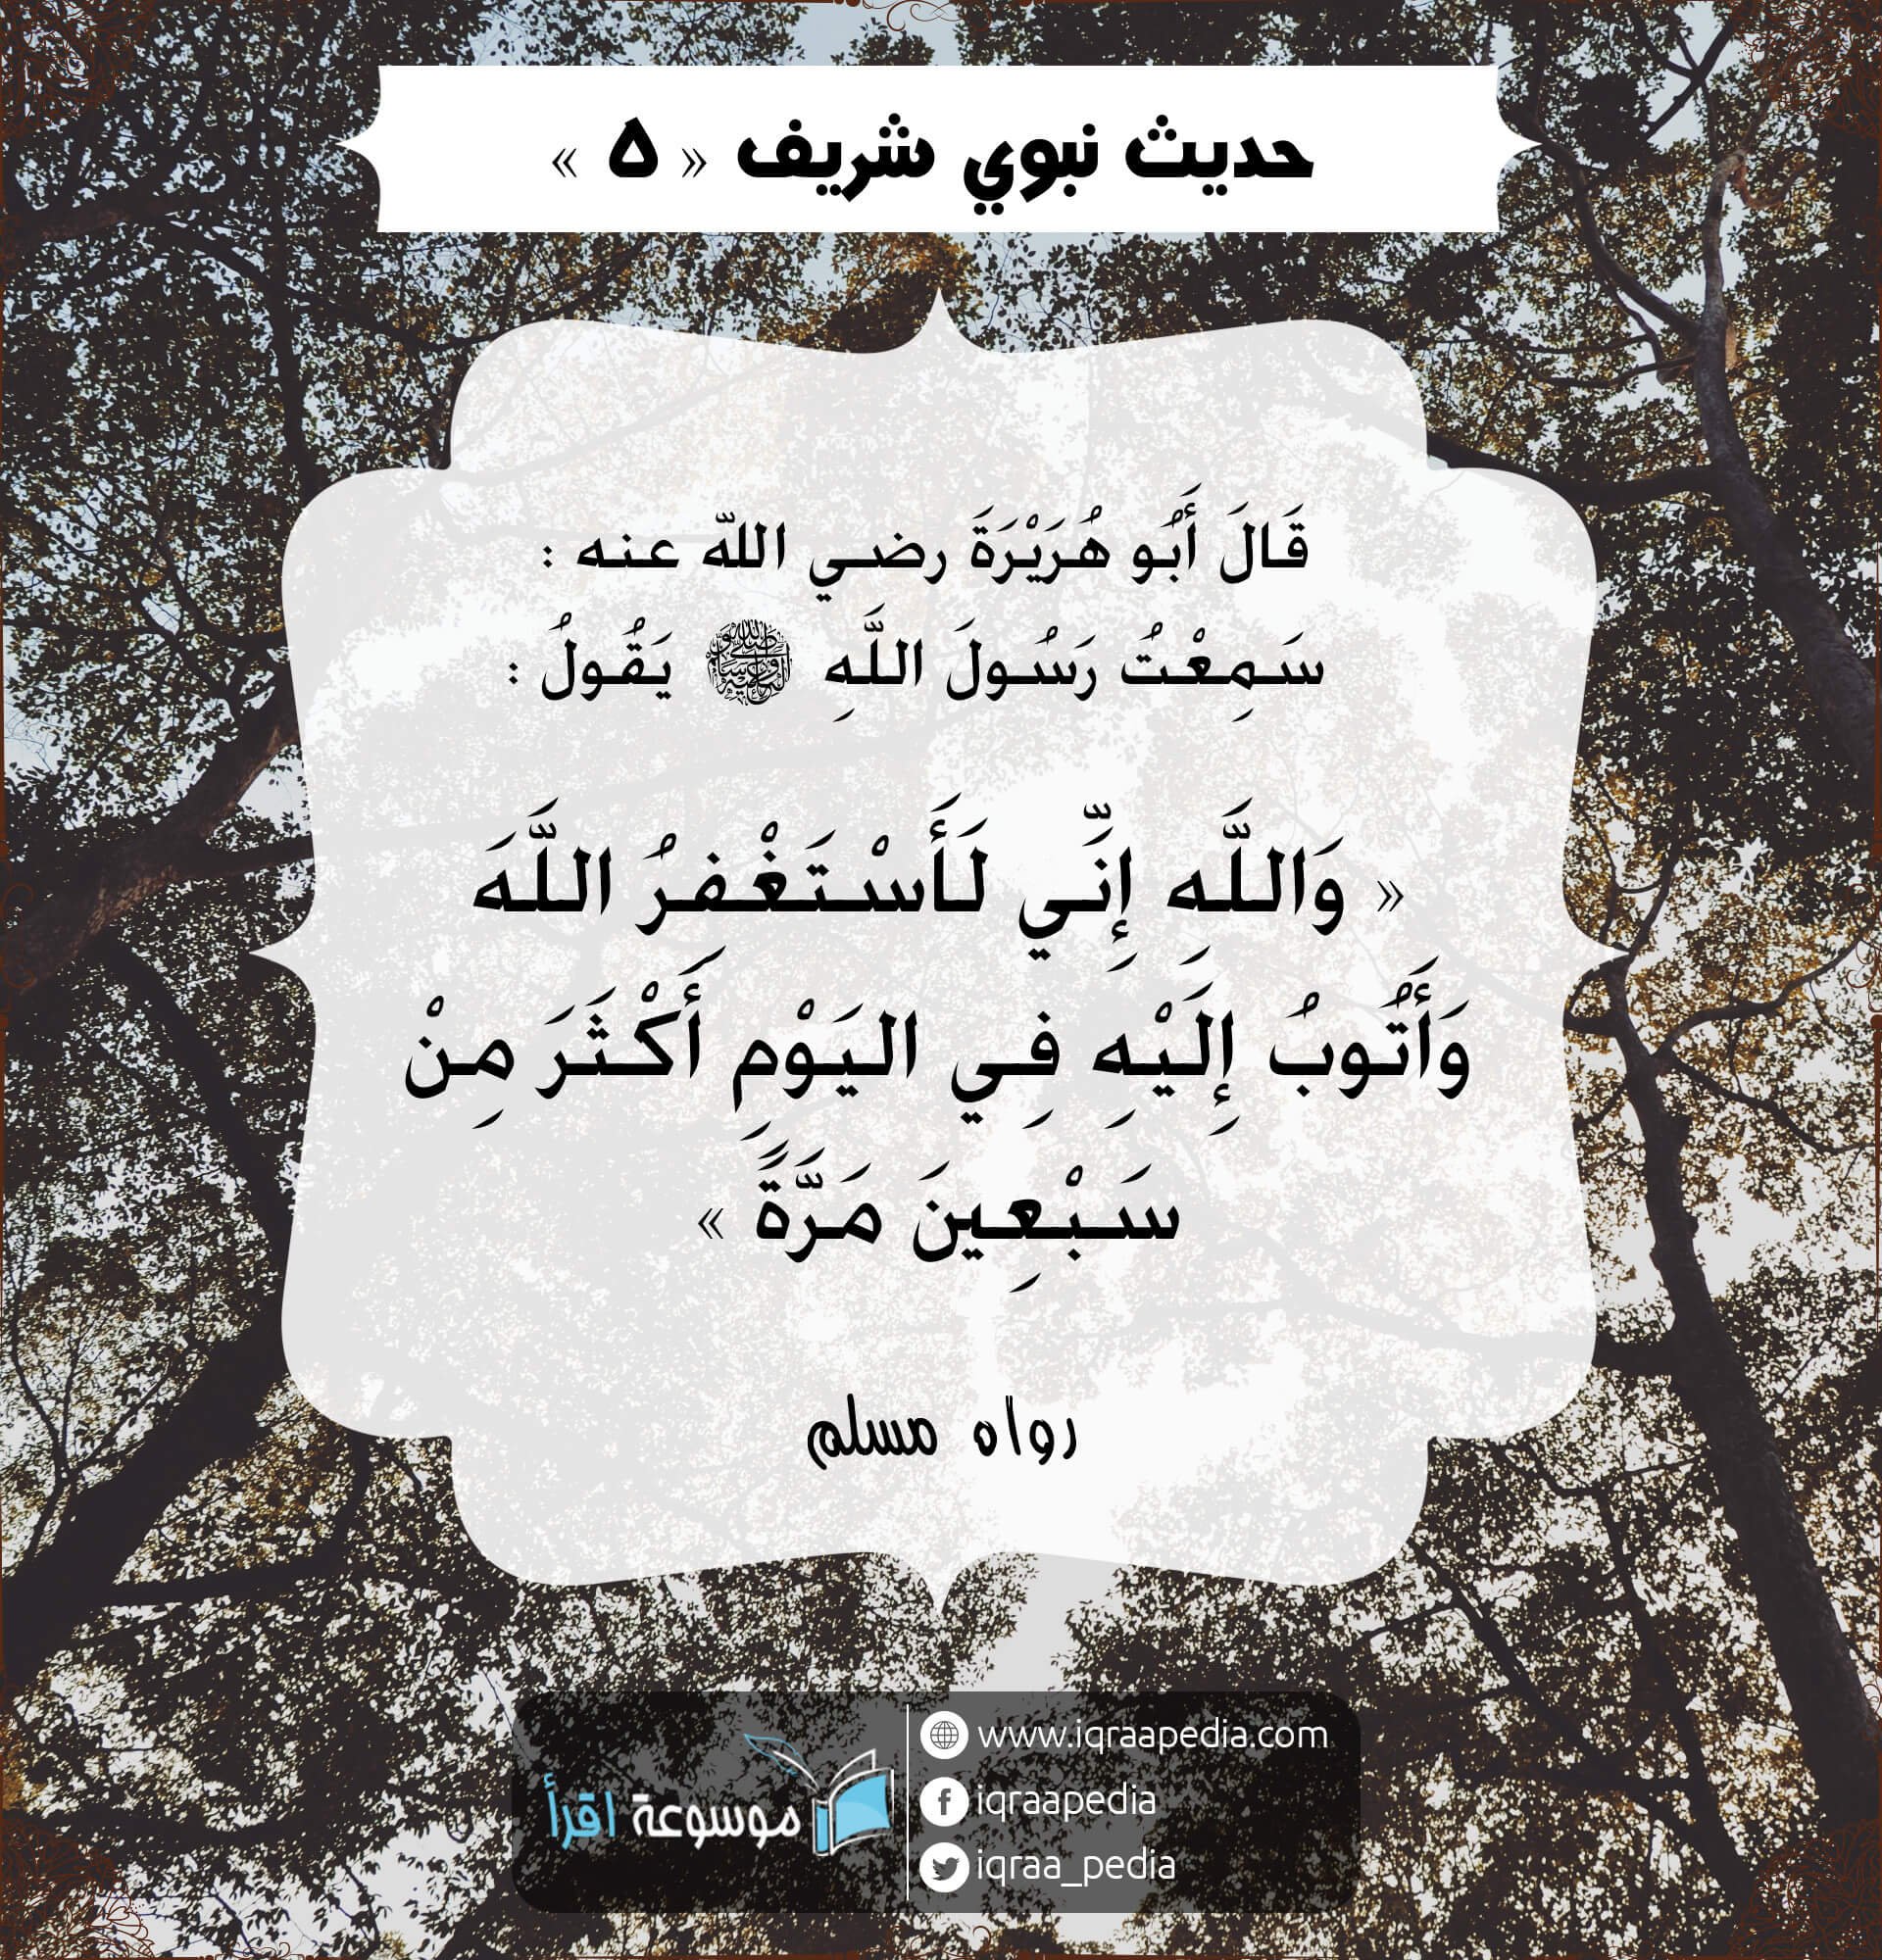 حديث نبوي شريف « ٥ »
قَالَ أَبُو هُرَيْرَةَ رضي اللّه عنه :
سَمِعْتُ رَسُولَ اللَّهِ ﷺ يَقُولُ :
« وَاللَّهِ إِنِّي لَأَسْتَغْفِرُ اللَّهَ
وَأَتُوبُ إِلَيْهِ فِي اليَوْمِ أَكْثَرَ مِنْ
سَبْعِينَ مَرَّةً »
رواه مسلم
موسوعة اقرأ
www.iqraapedia.com
iqraapedia
iqraa_pedia